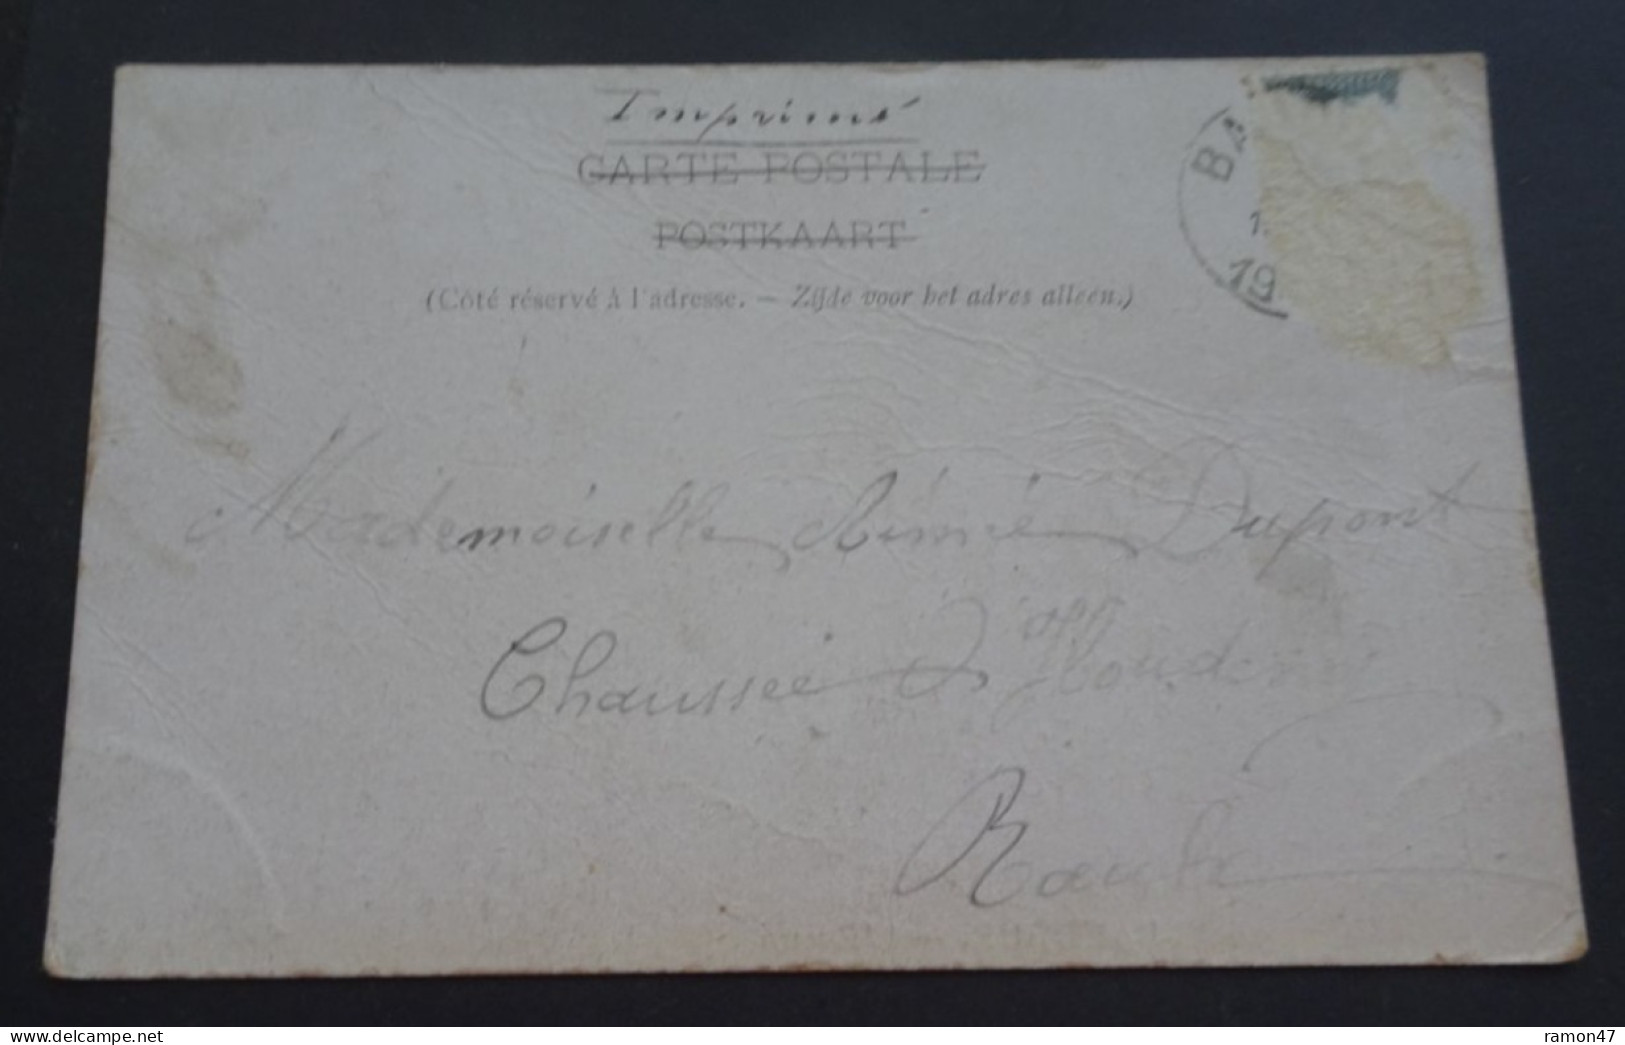 Imprimé
CARTE POSTALE
POSTKAART
(Côté réservé à l'adresse. — Zijde voor het adres alleen.)
BA
1
19
Mademoiselle Aimée Dupont
Chaussée d'Houdeng
Rœulx
Delcampe.net
ramon47